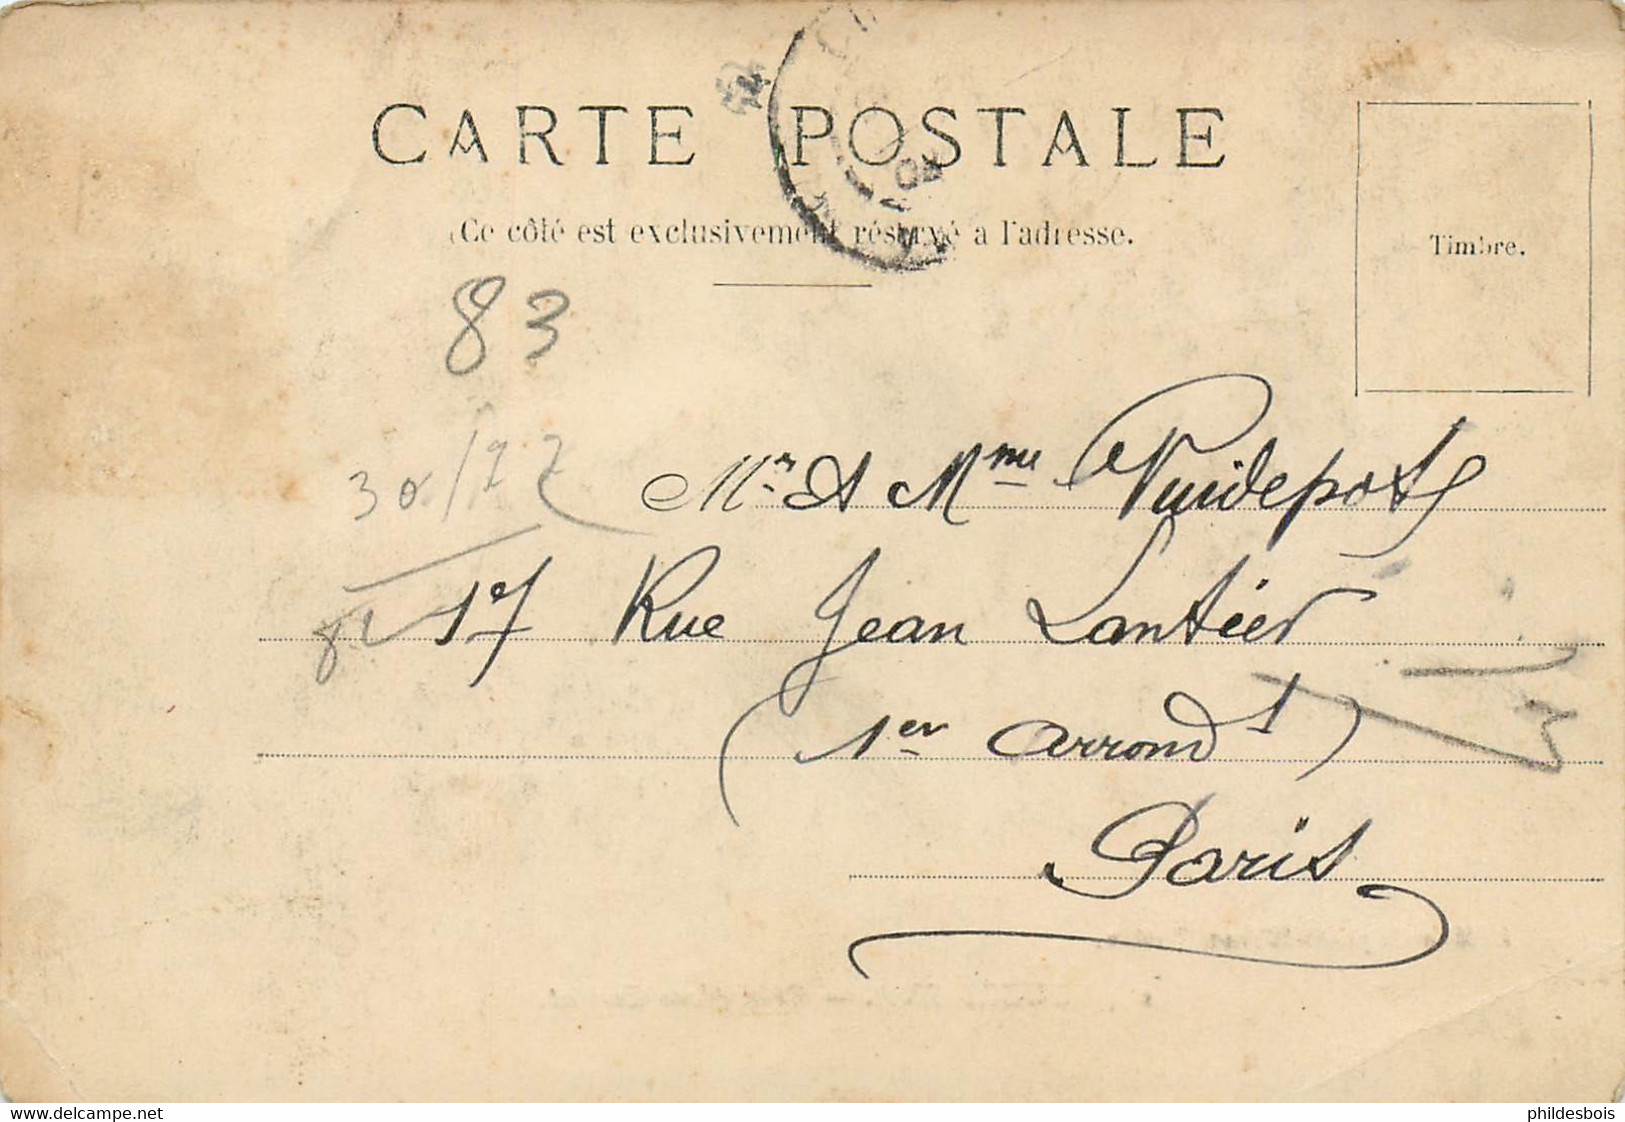 CARTE POSTALE
Ce côté est exclusivement réservé a l'adresse.
Timbre.
04
83
30/
Mr et Mme Puidepots
17 Rue Jean Lantier
(1er Arrondt)
Paris
www.delcampe.net
phildesbois